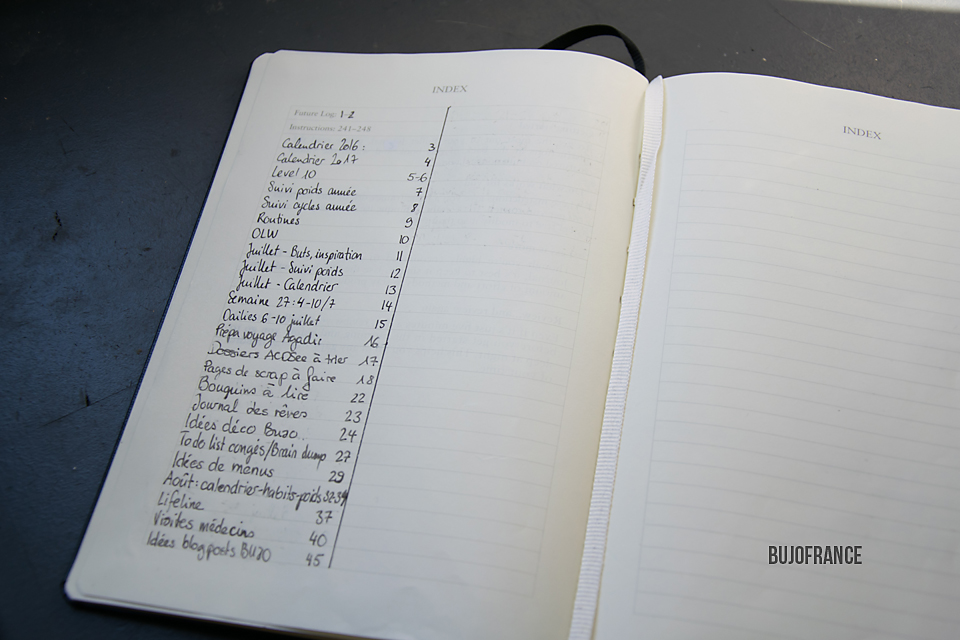 INDEX
Future Log: 1-2
Instructions: 241-248
Calendrier 2016: 3
Calendrier 2017 4
Level 10 5-6
Suivi poids année 7
Suivi cycles année 8
Routines 9
OLW 10
Juillet - Buts, inspiration 11
Juillet - Suivi poids 12
Juillet - Calendrier 13
Semaine 27: 4-10/7 14
Dailies 6-10 juillet 15
Prépa voyage Agadir 16
Dossiers ACDSee à trier 17
Pages de scrap à faire 18
Bouquins à lire 22
Journal des rêves 23
Idées déco BuJo.. 24
To do list congés/Brain dump 27
Idées de menus 29
Août: calendrier-habits-poids 32-34
Lifeline 37
Visites médecins 40
Idées blogposts BUJO 45
INDEX
BUJOFRANCE